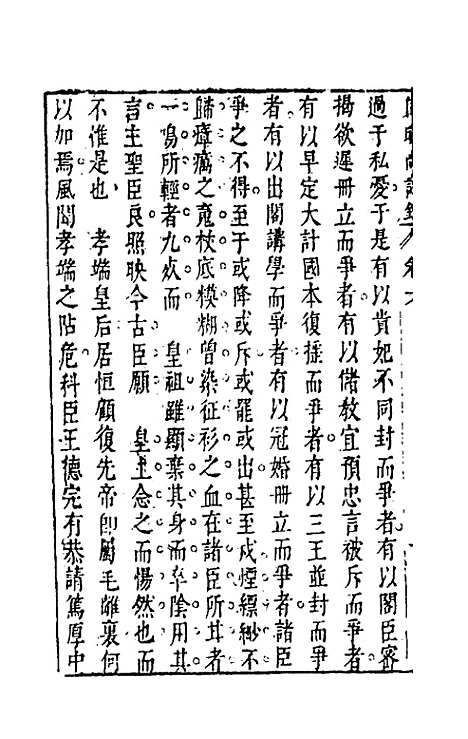 過于私憂于是有以貴妃不同封而爭者有以閣臣密
揭欲遲冊立而爭者有以儲教宜預忠言被斥而爭者
有以早定大計國本復搖而爭者有以三王並封而爭
者有以出閣講學而爭者有以冠婚冊立而爭者諸臣
爭之不得至于或降或斥或罷或出甚至戍煙瘴紗不
歸瘴癘之䰟杖底糢糊曾染征衫之血在諸臣所耳者
一鳴所輕者九死而　皇祖雖顯棄其身而卒陰用其
言主聖臣良照映今古臣願　皇上念之而惕然也而
不惟是也　孝端皇后居恒顧復先帝即屬毛離裏何
以加焉風聞孝端之阽危科臣王德完有恭請篤厚中